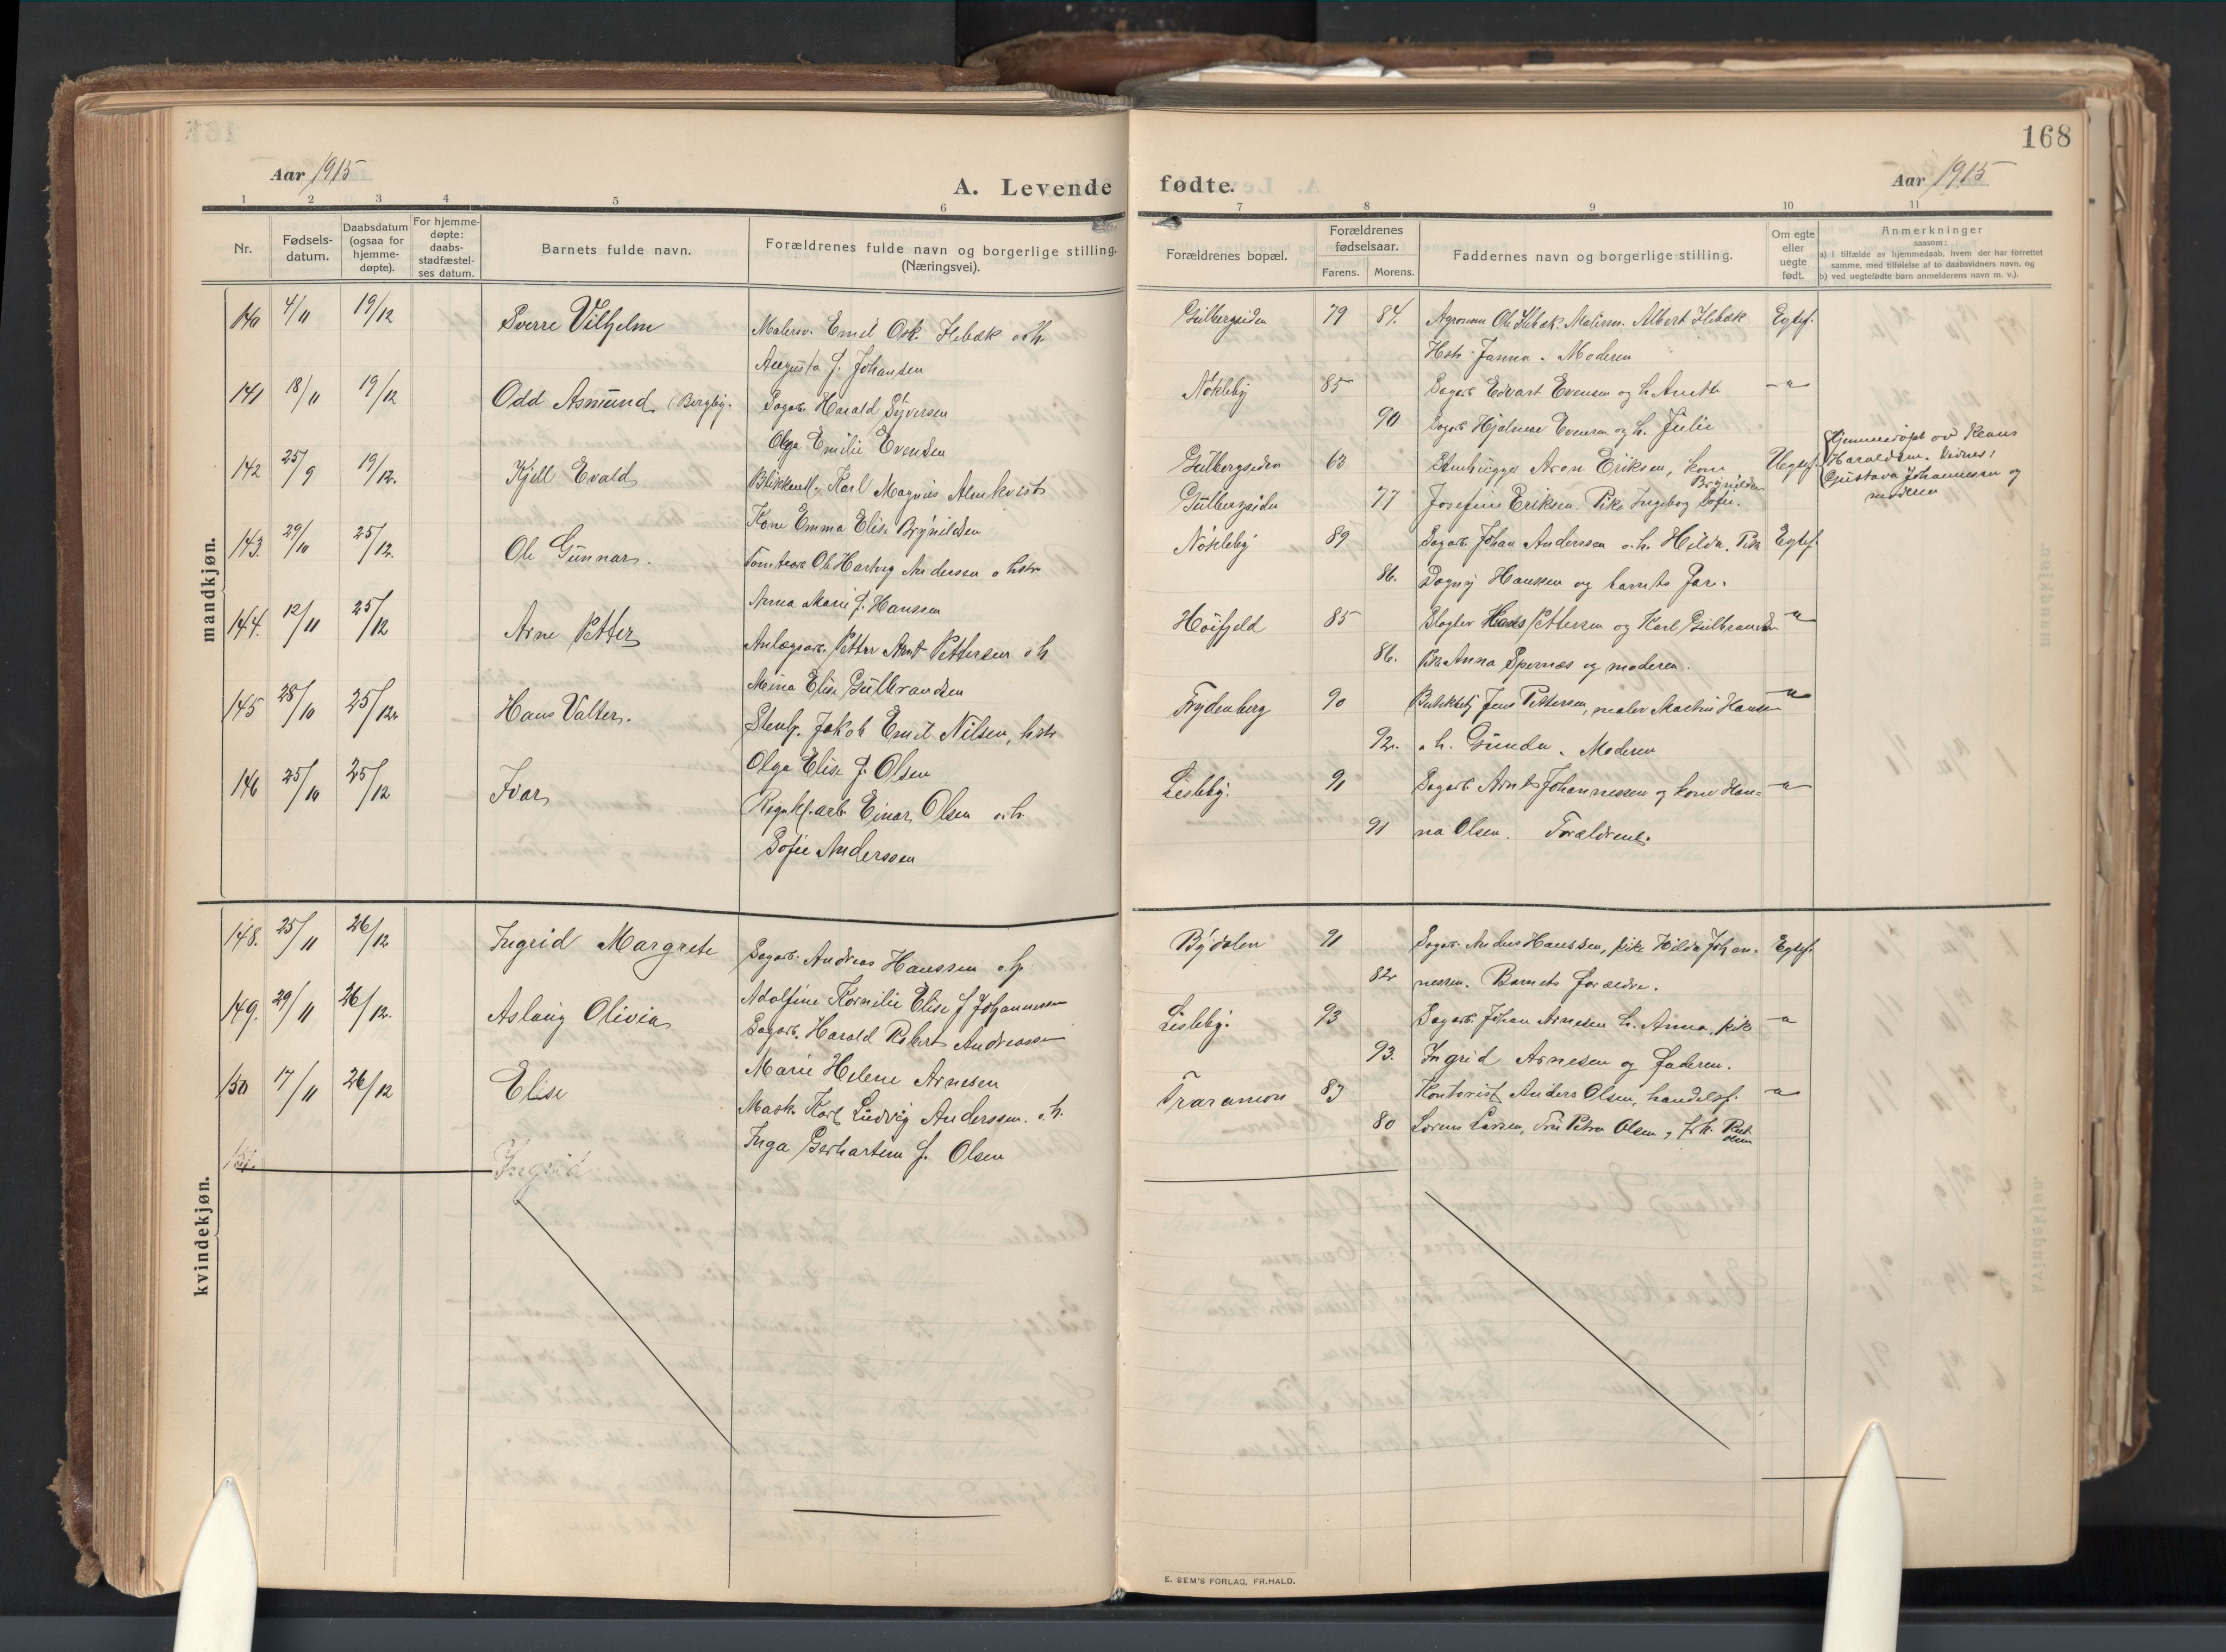 168
Aar 1915
A. Levende fødte.
Aar 1915
1 2 3 4 5 6 7 8 9 10 11
Nr.
Fødsels-
datum.
Daabsdatum
(ogsaa for
hjemme-
døpte).
For hjemme-
døpte:
daabs-
stadfæstel-
ses datum.
Barnets fulde navn.
Forældrenes fulde navn og borgerlige stilling.
(Næringsvei).
Forældrenes bopæl.
Forældrenes
fødselsaar.
Farens. Morens.
Faddernes navn og borgerlige stilling.
Om egte
eller
uegte
født.
Anmerkninger
saasom:
a) i tilfælde av hjemmedaab, hvem der har forrettet
samme, med tilføielse af to daabsvidners navn, og
b) ved uegtefødte barn anmelderens navn m. v.).
mandkjøn.
140 4/11 19/12 Sverre Vilhelm Malersv. Emil Osk. Ilebæk o h. Gulbergsiden 79 84. Agronom Ole Ilebæk. Malerm. Albert Ilebæk Egtef.
Augusta f. Johansen Hstr. Janna. Moderen
141 18/11 19/12 Odd Asmund (Bergby. Sagarb. Harald Syversen Nøkleby 85 Sagarb Edvart Evensen og h. Anette —"—
Olga Emilie Evensen 90 Sagarb Hjalmar Evensen og h. Julie
142 25/9 19/12. Kjell Evald Karl Magnus Almkvist Gulbergsiden 63 Stenhugger Aron Eriksen, kone Uegtef.
Brynildsen
Kone Emma Elise Brynildsen Gulbergsiden 77 Josefine Eriksen. Pike Ingebog Sofie.
Hjemmedøpt av
Haraldsen. Vidner:
Gustava Johannessen og
moderen
143. 29/10 25/12. Ole Gunnar. Tomtearb Ole Hartvig Andersen o hstr Nøkleby 89 Sagarb. Johan Anderssen o. h. Hilda. Pike Egtef.
Anna Marie f. Hanssen 86. Dagny Hanssen og barnets Far.
144. 12/11 25/12 Arne Petter Anlægsarb. Petter Arnt Pettersen o h Høifjeld 85 Slagter Hans Pettersen og Karl Gulbrandsen —"—
Mina Elise Gulbrandsen 86. Pike Anna Spernæs og moderen.
145 28/10 25/12. Hans Valter. Stenh. Jakob Emil Nilsen, hstr Frydenberg 90 Jens Pettersen, maler Martin Hansen —"—
Olga Elise f. Olsen 92. o h. Gunda. Moderen
146 25/10 25/12 Ivar Einar Olsen o. h. Lisleby. 91 Sagarb Arnt Johannessen og kone Han- —"—
Sofie Anderssen 91 na Olsen. Forældrene.
kvindekjøn.
148. 25/11 26/12 Ingrid Margrete Sagarb. Andreas Hanssen o. h Bydalen 91 Sagarb. Anders Hanssen, pike Hilda Johan- Egtef.
Adolfine Kornilie Elise f Johannessen 82 nessen. Barnets forældre.
149. 29/11 26/12. Aslaug Olivia Sagarb. Harald Robert Andreassen Lisleby. 93 Sagarb. Johan Arnesen h. Anna, pike —"—
Marie Helene Arnesen 93. Ingrid Arnesen og faderen.
150 17/11 26/12 Elise Mask. Karl Ludvig Anderssen. o. h. Traramon 83 Kontorist Anders Olsen, handelsf. —"—
Inga Gerhartine f. Olsen 80 Lorens Larsen, Fru Petra Olsen, frk. Rut
Olsen
151. Ingrid
E. SEM'S FORLAG, FR.HALD.